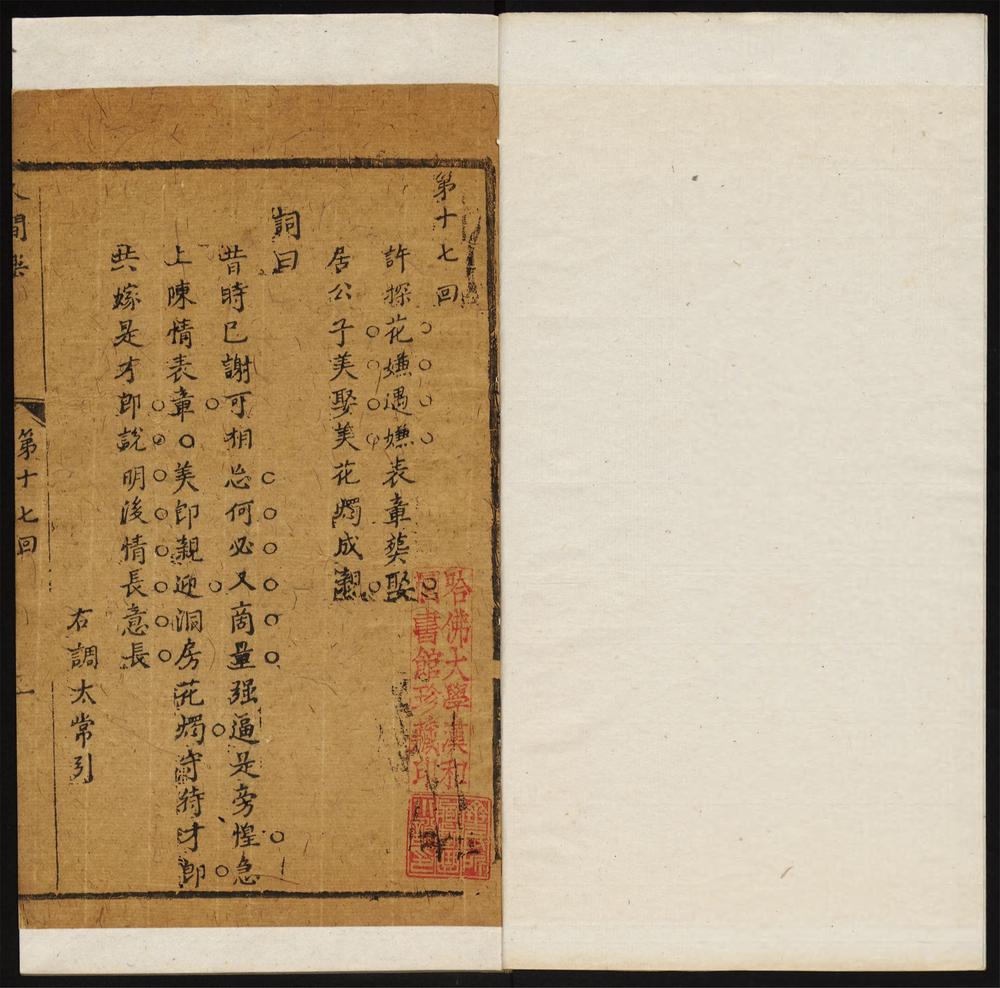 第十七回
許探花嫌遇嫌表章葬娶
居公子美娶美花燭成親
詞曰
昔時已謝可相忘何必又商量强逼是旁惶急
上陳情表章美郎親迎洞房花燭守待才郎
共嫁是才郎說明後情長意長
右調太常引
人間樂
第十七回
一
哈佛大學漢和
圖書館珍藏印